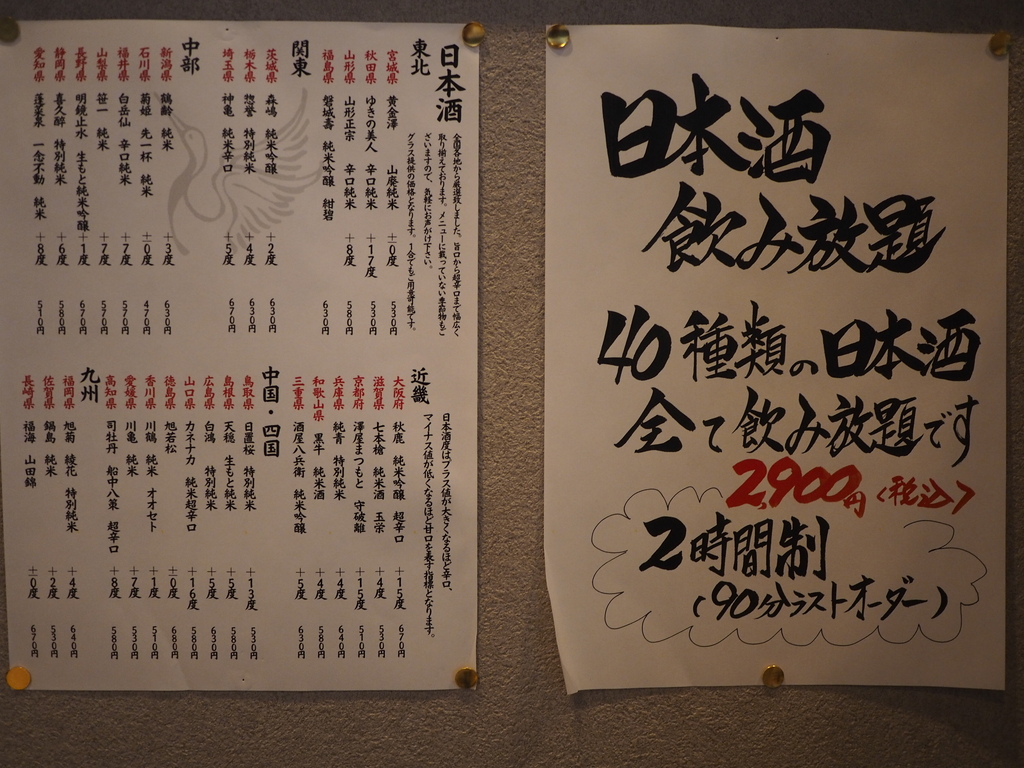 日本酒
全国各地から厳選致しました。旨口から超辛口まで幅広く
取り揃えております。メニューに載っていない季節物もご
ざいますので、気軽にお声がけ下さい。
グラス提供の価格となります。1合でもご用意可能です。
東北
宮城県 黄金澤 山廃純米 ±0度 530円
秋田県 ゆきの美人 辛口純米 +17度 530円
山形県 山形正宗 辛口純米 +8度 580円
福島県 磐城壽 純米吟醸 紺碧 630円
関東
茨城県 森嶋 純米吟醸 +2度 630円
栃木県 惣誉 特別純米 +4度 630円
埼玉県 神亀 純米辛口 +5度 670円
中部
新潟県 鶴齢 純米 +3度 630円
石川県 菊姫 先一杯 純米 ±0度 470円
福井県 白岳仙 辛口純米 +7度 570円
山梨県 笹一 純米 +7度 570円
長野県 明鏡止水 生もと純米吟醸 +1度 670円
静岡県 喜久醉 特別純米 +6度 580円
愛知県 蓬莱泉 一念不動 純米 +8度 510円
日本酒度はプラス値が大きくなるほど辛口、
マイナス値が低くなるほど甘口を表す指標となります。
近畿
大阪府 秋鹿 純米吟醸 超辛口 +15度 670円
滋賀県 七本槍 純米酒 玉栄 +4度 530円
京都府 澤屋まつもと 守破離 +15度 510円
兵庫県 純青 特別純米 +4度 640円
和歌山県 黒牛 純米酒 +4度 580円
三重県 酒屋八兵衛 純米吟醸 +5度 630円
中国・四国
鳥取県 日置桜 特別純米 +13度 530円
島根県 天穏 生もと純米 +5度 580円
広島県 白鴻 特別純米 +5度 630円
山口県 カネナカ 純米超辛口 +16度 580円
徳島県 旭若松 ±0度 680円
香川県 川鶴 純米 オオセト +1度 510円
愛媛県 川亀 純米 +7度 530円
高知県 司牡丹 船中八策 超辛口 +8度 580円
九州
福岡県 旭菊 綾花 特別純米 +4度 640円
佐賀県 鍋島 純米 +2度 530円
長崎県 福海 山田錦 ±0度 670円
日本酒
飲み放題
40種類の日本酒
全て飲み放題です
2,900円〈税込〉
2時間制
(90分ラストオーダー)